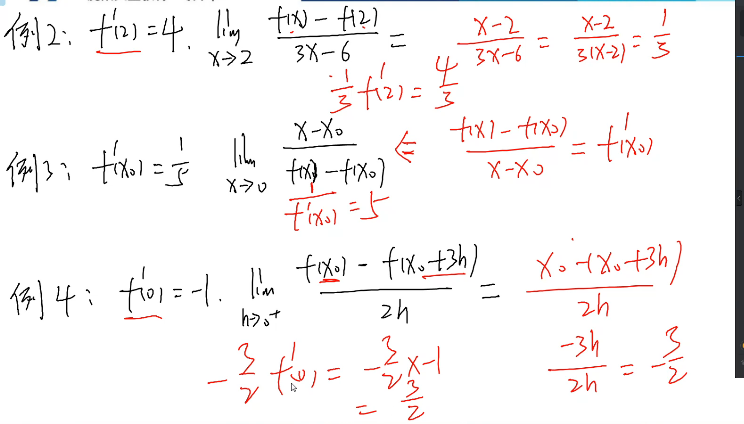 例2: f'(2)=4. lim x→2 f(x)-f(2) / 3x-6 = x-2 / 3x-6 = x-2 / 3(x-2) = 1/3
1/3 f'(2) = 4/3
例3: f'(x₀)=1/5 lim x→0 x-x₀ / f(x)-f(x₀) ⇐ f(x)-f(x₀) / x-x₀ = f'(x₀)
1 / f'(x₀) = 5
例4: f'(0)=-1. lim h→0⁺ f(x₀)-f(x₀+3h) / 2h = x₀-(x₀+3h) / 2h
-3/2 f'(0) = -3/2 x-1 -3h / 2h = -3/2
= 3/2